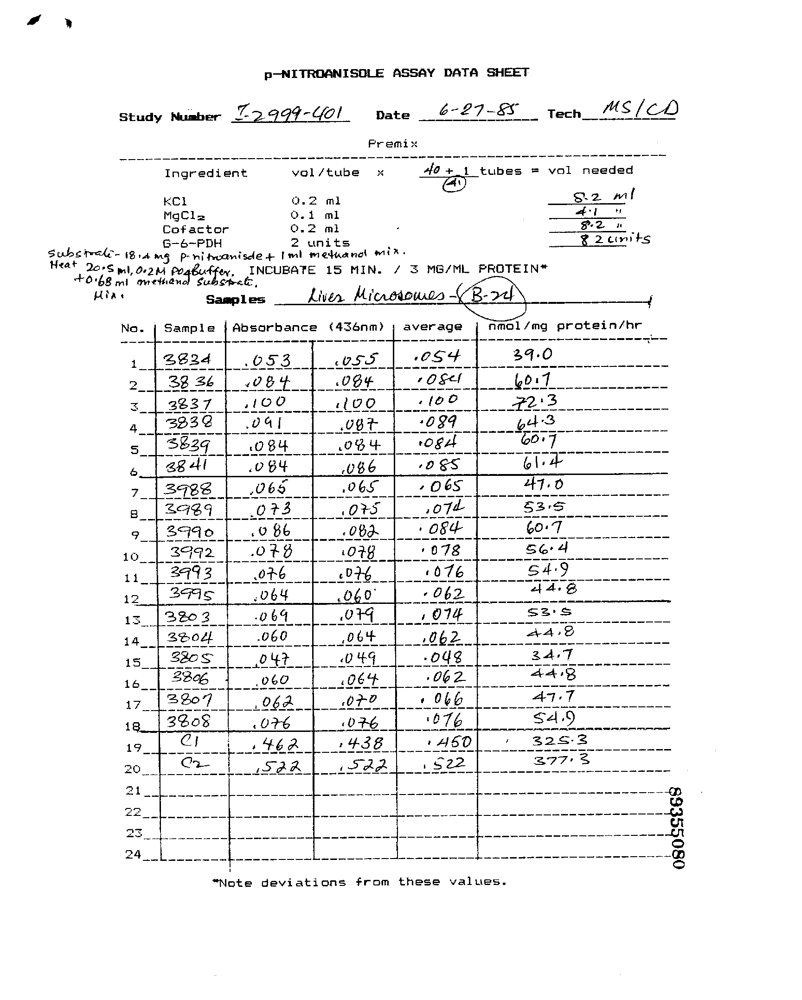 p-NITROANISOLE ASSAY DATA SHEET
Study Number I-2999-401 Date 6-27-85 Tech MS/CD
Premix
Ingredient vol/tube x 40 + 1 tubes = vol needed
41
KCl 0.2 ml 8.2 ml
MgCl₂ 0.1 ml 4.1 "
Cofactor 0.2 ml 8.2 "
G-6-PDH 2 units 82 units
Substrate - 18.4 mg p-nitroanisole + 1 ml methanol mix.
Heat 20.5 ml, 0.2M PO4 buffer. INCUBATE 15 MIN. / 3 MG/ML PROTEIN*
+0.68 ml methanol Substrate.
Mix.
Samples Liver Microsomes - (B-24)
No. Sample Absorbance (436nm) average nmol/mg protein/hr
1 3834 .053 .055 .054 39.0
2 3836 .084 .084 .084 60.7
3 3837 .100 .100 .100 72.3
4 3838 .091 .087 .089 64.3
5 3839 .084 .084 .084 60.7
6 3841 .084 .086 .085 61.4
7 3988 .065 .065 .065 47.0
8 3989 .073 .075 .074 53.5
9 3990 .086 .082 .084 60.7
10 3992 .078 .078 .078 56.4
11 3993 .076 .076 .076 54.9
12 3995 .064 .060 .062 44.8
13 3803 .069 .079 .074 53.5
14 3804 .060 .064 .062 44.8
15 3805 .047 .049 .048 34.7
16 3806 .060 .064 .062 44.8
17 3807 .062 .070 .066 47.7
18 3808 .076 .076 .076 54.9
19 C1 .462 .438 .450 325.3
20 C2 .522 .522 .522 377.3
21
22
23
24
*Note deviations from these values.
89355080